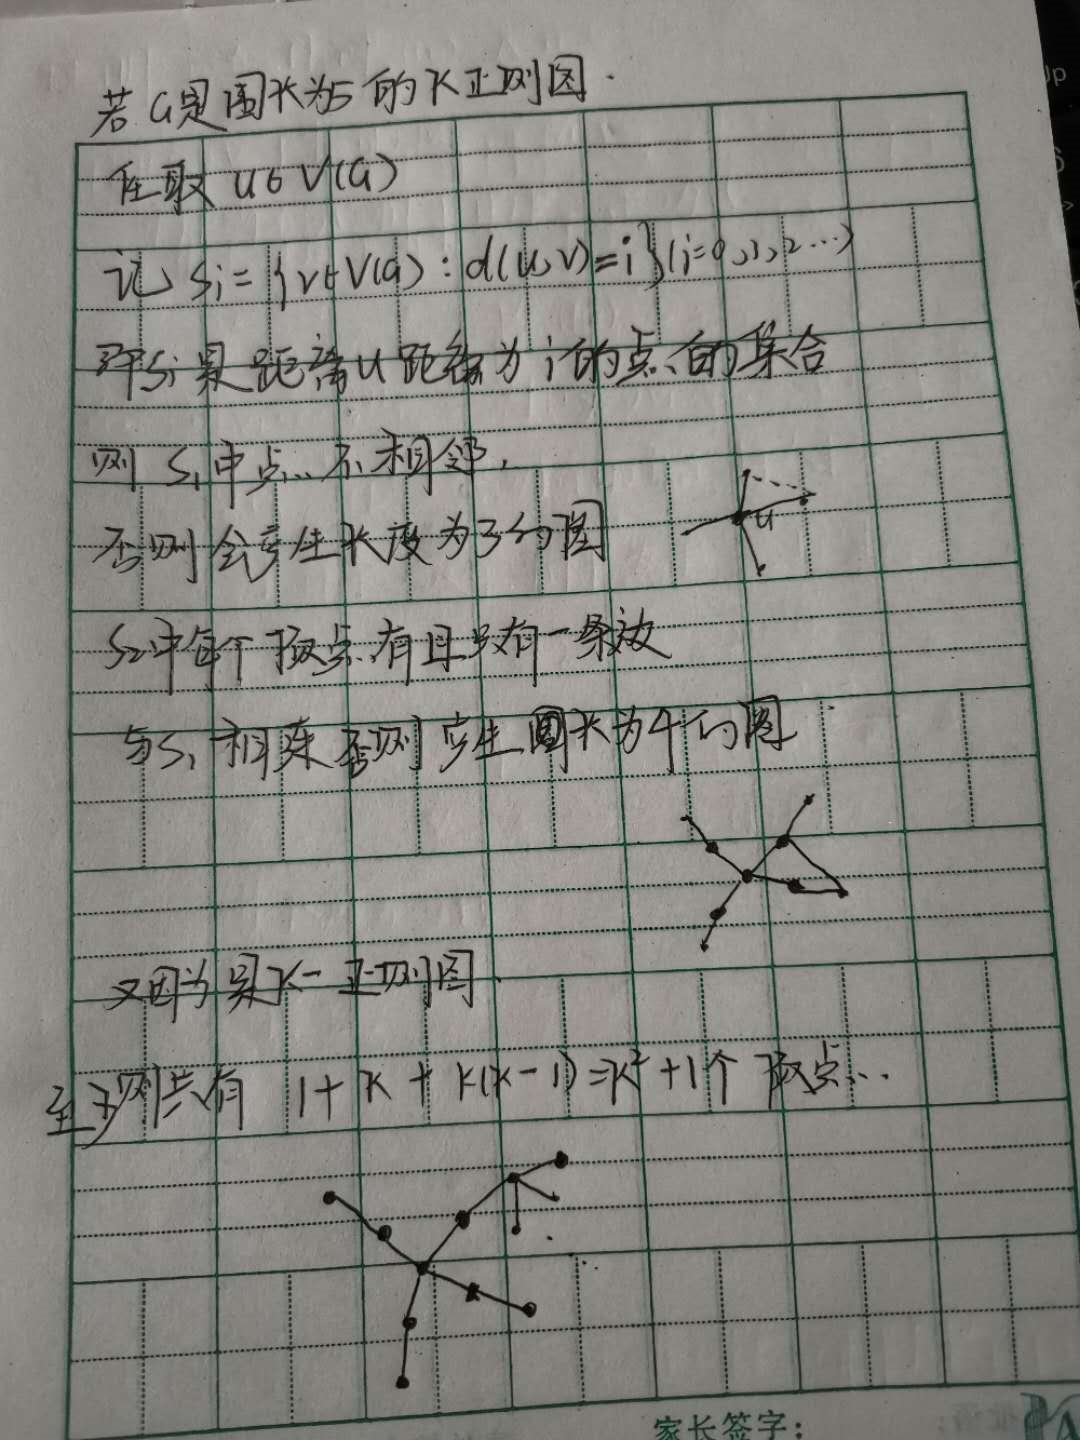 若G是围长为5的K正则图.
任取 u∈V(G)
记 Si={v∈V(G):d(u,v)=i}(i=0,1,2…)
即Si是距离u距离为i的点的集合
则 S₁中点不相邻,
否则会产生长度为3的圈
u
S₂中每个顶点有且只有一条边
与S₁相连否则产生围长为4的圈
又因为是K-正则图
至少则共有 1+K+K(K-1)=K²+1个顶点...
家长签字: